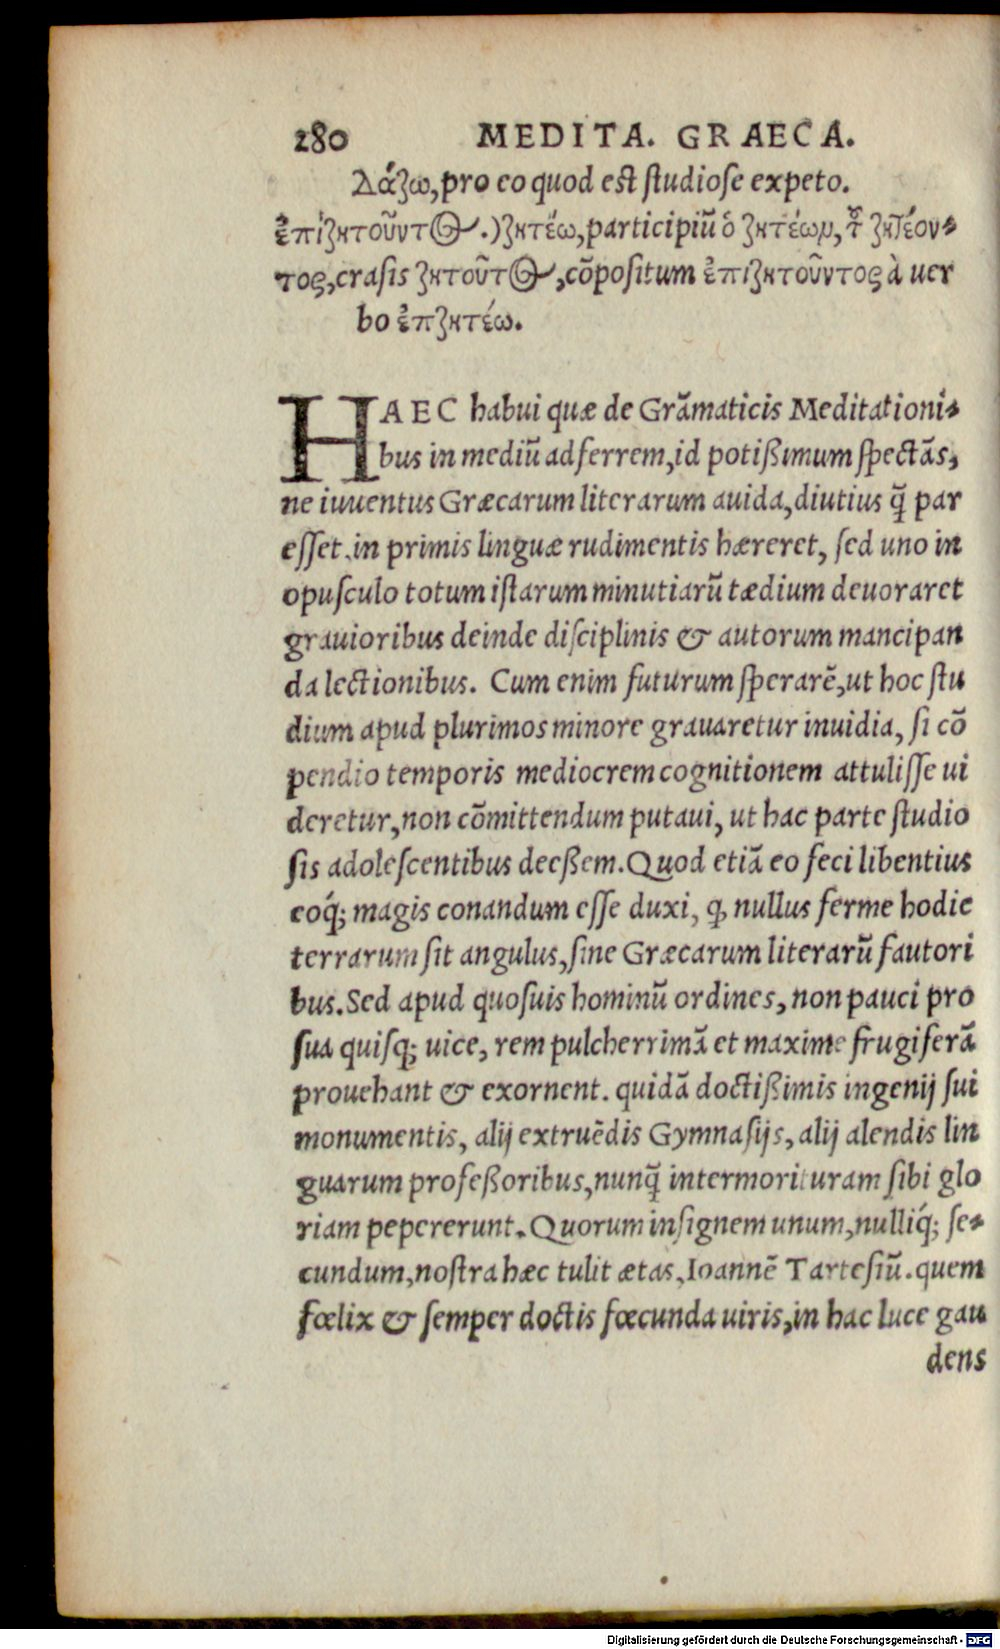 280 MEDITA. GRAECA.
λάζω, pro eo quod est studiose expeto.
ἐπιζητοῦντος.) ζητέω, participiũ ὁ ζητέων, τ͂ ζητέον-
τος, crasis ζητοῦτος, cõpositum ἐπιζητοῦντος à uer
bo ἐπζητέω.
HAEC habui quæ de Grãmaticis Meditationi-
bus in mediũ adferrem, id potißimum spectãs,
ne iuuentus Græcarum literarum auida, diutius q̃ par
esset in primis linguæ rudimentis hæreret, sed uno in
opusculo totum istarum minutiarũ tædium deuoraret
grauioribus deinde disciplinis & autorum mancipan
da lectionibus. Cum enim futurum sperarẽ, ut hoc stu
dium apud plurimos minore grauaretur inuidia, si cõ
pendio temporis mediocrem cognitionem attulisse ui
deretur, non cõmittendum putaui, ut hac parte studio
sis adolescentibus deeßem. Quod etiã eo feci libentius
eoq́; magis conandum esse duxi, ꝙ nullus ferme hodie
terrarum sit angulus, sine Græcarum literarũ fautori
bus. Sed apud quosuis hominũ ordines, non pauci pro
sua quisq; uice, rem pulcherrimã et maxime frugiferã
prouehant & exornent. quidã doctißimis ingenij sui
monumentis, alij extruẽdis Gymnasijs, alij alendis lin
guarum profeßoribus, nunq̃ intermorituram sibi glo
riam pepererunt. Quorum insignem unum, nulliq́; se-
cundum, nostra hæc tulit ætas, Ioannẽ Tartesiũ. quem
fœlix & semper doctis fœcunda uiris, in hac luce gau
dens
Digitalisierung gefördert durch die Deutsche Forschungsgemeinschaft - DFG